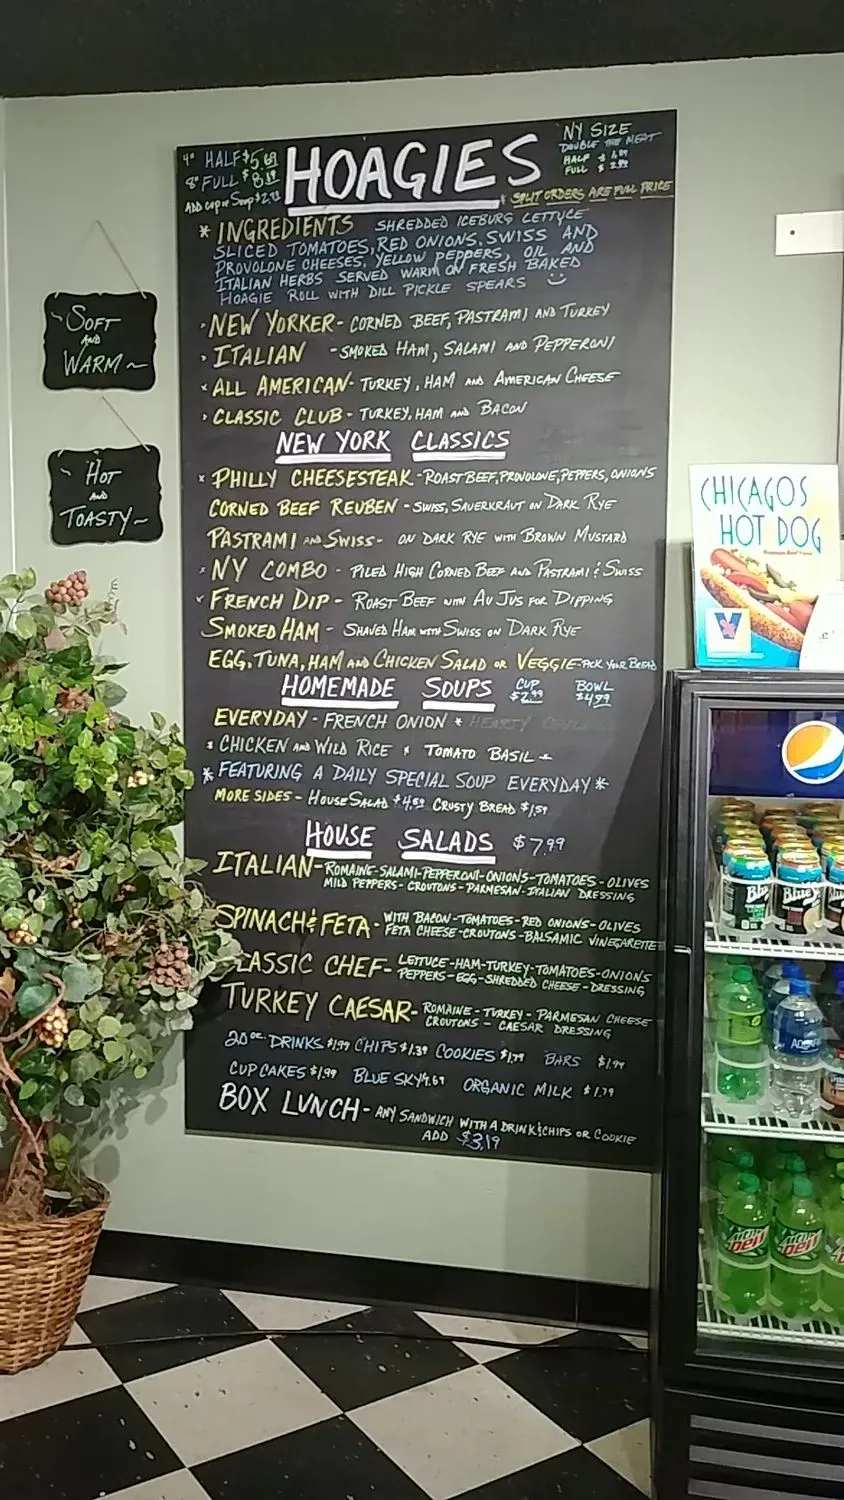 4" HALF $5.69
8" FULL $8.19
ADD cup of Soup
HOAGIES
NY SIZE
DOUBLE THE MEAT
HALF $
FULL $
* SPLIT ORDERS ARE FULL PRICE
* INGREDIENTS SHREDDED ICEBURG LETTUCE
SLICED TOMATOES, RED ONIONS, SWISS AND
PROVOLONE CHEESES, YELLOW PEPPERS, OIL AND
ITALIAN HERBS SERVED WARM ON FRESH BAKED
HOAGIE ROLL WITH DILL PICKLE SPEARS
NEW YORKER - CORNED BEEF, PASTRAMI AND TURKEY
ITALIAN - SMOKED HAM, SALAMI AND PEPPERONI
ALL AMERICAN - TURKEY, HAM AND AMERICAN CHEESE
CLASSIC CLUB - TURKEY, HAM AND BACON
NEW YORK CLASSICS
* PHILLY CHEESESTEAK - ROAST BEEF, PROVOLONE, PEPPERS, ONIONS
CORNED BEEF REUBEN - SWISS, SAUERKRAUT ON DARK RYE
PASTRAMI AND SWISS - ON DARK RYE WITH BROWN MUSTARD
NY COMBO - PILED HIGH CORNED BEEF AND PASTRAMI & SWISS
FRENCH DIP - ROAST BEEF WITH AU JUS FOR DIPPING
SMOKED HAM - SHAVED HAM WITH SWISS ON DARK RYE
EGG, TUNA, HAM AND CHICKEN SALAD OR VEGGIE - PICK YOUR BREAD
HOMEMADE SOUPS CUP $2.99 BOWL $4.99
EVERYDAY - FRENCH ONION *
* CHICKEN AND WILD RICE * TOMATO BASIL *
* FEATURING A DAILY SPECIAL SOUP EVERYDAY *
MORE SIDES - HOUSE SALAD CRUSTY BREAD $1.59
HOUSE SALADS $7.99
ITALIAN - ROMAINE - SALAMI - PEPPERONI - ONIONS - TOMATOES - OLIVES
MILD PEPPERS - CROUTONS - PARMESAN - ITALIAN DRESSING
SPINACH & FETA - WITH BACON - TOMATOES - RED ONIONS - OLIVES
FETA CHEESE - CROUTONS - BALSAMIC VINEGARETTE
CLASSIC CHEF - LETTUCE - HAM - TURKEY - TOMATOES - ONIONS
PEPPERS - EGG - SHREDDED CHEESE - DRESSING
TURKEY CAESAR - ROMAINE - TURKEY - PARMESAN CHEESE
CROUTONS - CAESAR DRESSING
20 oz. DRINKS $1.99 CHIPS $1.39 COOKIES $1.79 BARS $1.99
CUP CAKES $1.99 BLUE SKY ORGANIC MILK $1.79
BOX LUNCH - ANY SANDWICH WITH A DRINK & CHIPS OR COOKIE
ADD $3.19
~ SOFT
AND
WARM ~
~ HOT
AND
TOASTY ~
CHICAGOS
HOT DOG
V
Blue Blue
Mtn Dew Mtn Dew